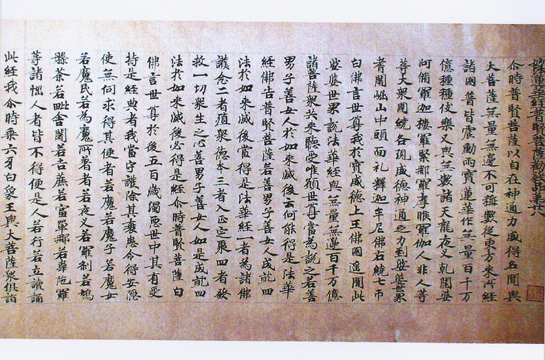 妙法蓮華經普賢菩薩勸發品第廿八
尒時普賢菩薩以自在神通力威德名聞與
大菩薩無量無邊不可稱數從東方來所經
諸國普皆震動雨寶蓮華作無量百千万
億種種伎樂又與無數諸天龍夜叉乾闥婆
阿脩羅迦樓羅緊那羅摩睺羅伽人非人等
大衆圍繞各現威德神通之力到娑婆世界
耆闍崛山中頭面礼釋迦牟尼佛右繞七帀
白佛言世尊我於寶威德上王佛國遥聞此
娑婆世界說法華經與無量無邊百千万億
諸菩薩衆共來聽受唯願世尊當為說之若善
男子善女人於如來滅後云何能得是法華
經佛告普賢菩薩若善男子善女人成就四
法於如來滅後當得是法華經一者為諸佛
護念二者殖衆德本三者入正定聚四者發
救一切衆生之心善男子善女人如是成就四
法於如來滅後必得是經尒時普賢菩薩白
佛言世尊於後五百歲濁惡世中其有受
持是經典者我當守護除其衰患令得安隱
使無伺求得其便者若魔若魔子若魔女
若魔民若為魔所著者若夜叉若羅剎若鳩
槃荼若毗舍闍若吉蔗若富單那若韋陀羅
等諸惱人者皆不得便是人若行若立讀誦
此經我尒時乘六牙白象王與大菩薩衆俱詣